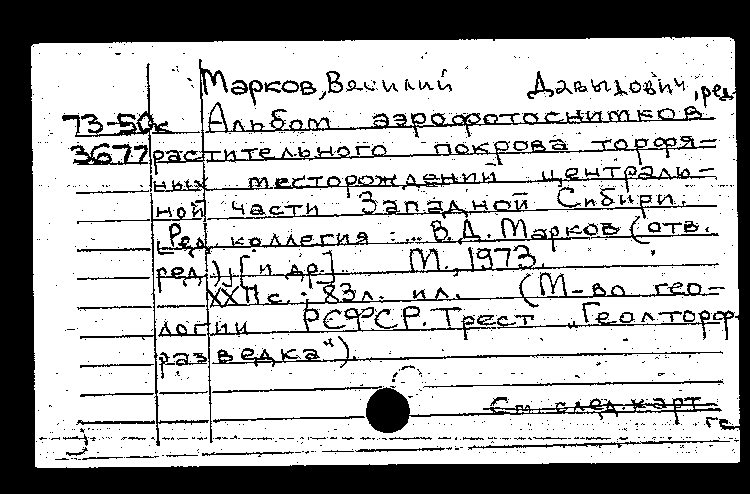 Марков, Василий Давыдович, ред.
73-50к Альбом аэрофотоснимков
3677 растительного покрова торфя-
ных месторождений централь-
ной части Западной Сибири.
[Ред. коллегия: ... В.Д. Марков (отв.
ред.), [и др.] М., 1973.
XXII с.; 83л. ил. (М-во гео-
логии РСФСР. Трест „Геолторф-
разведка").
См. след. карт.